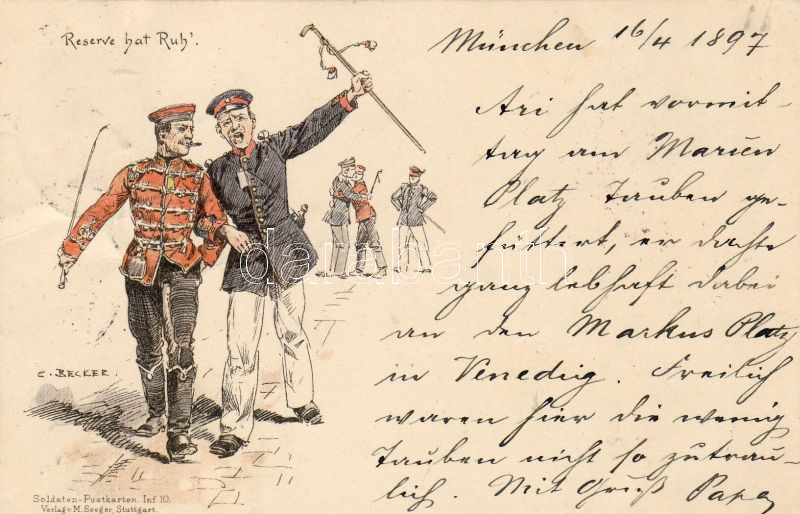 Reserve hat Ruh'.
München 16/4 1897
Ari hat vormit-
tag am Marien
Platz Tauben ge-
füttert, er dachte
ganz lebhaft dabei
an den Markus Platz
in Venedig. Freilich
waren hier die wenig
Tauben nicht so zutrau-
lich. Mit Gruß Papa
C. BECKER.
Soldaten-Postkarten. Inf 10.
Verlag v. M. Seeger, Stuttgart
darabanth